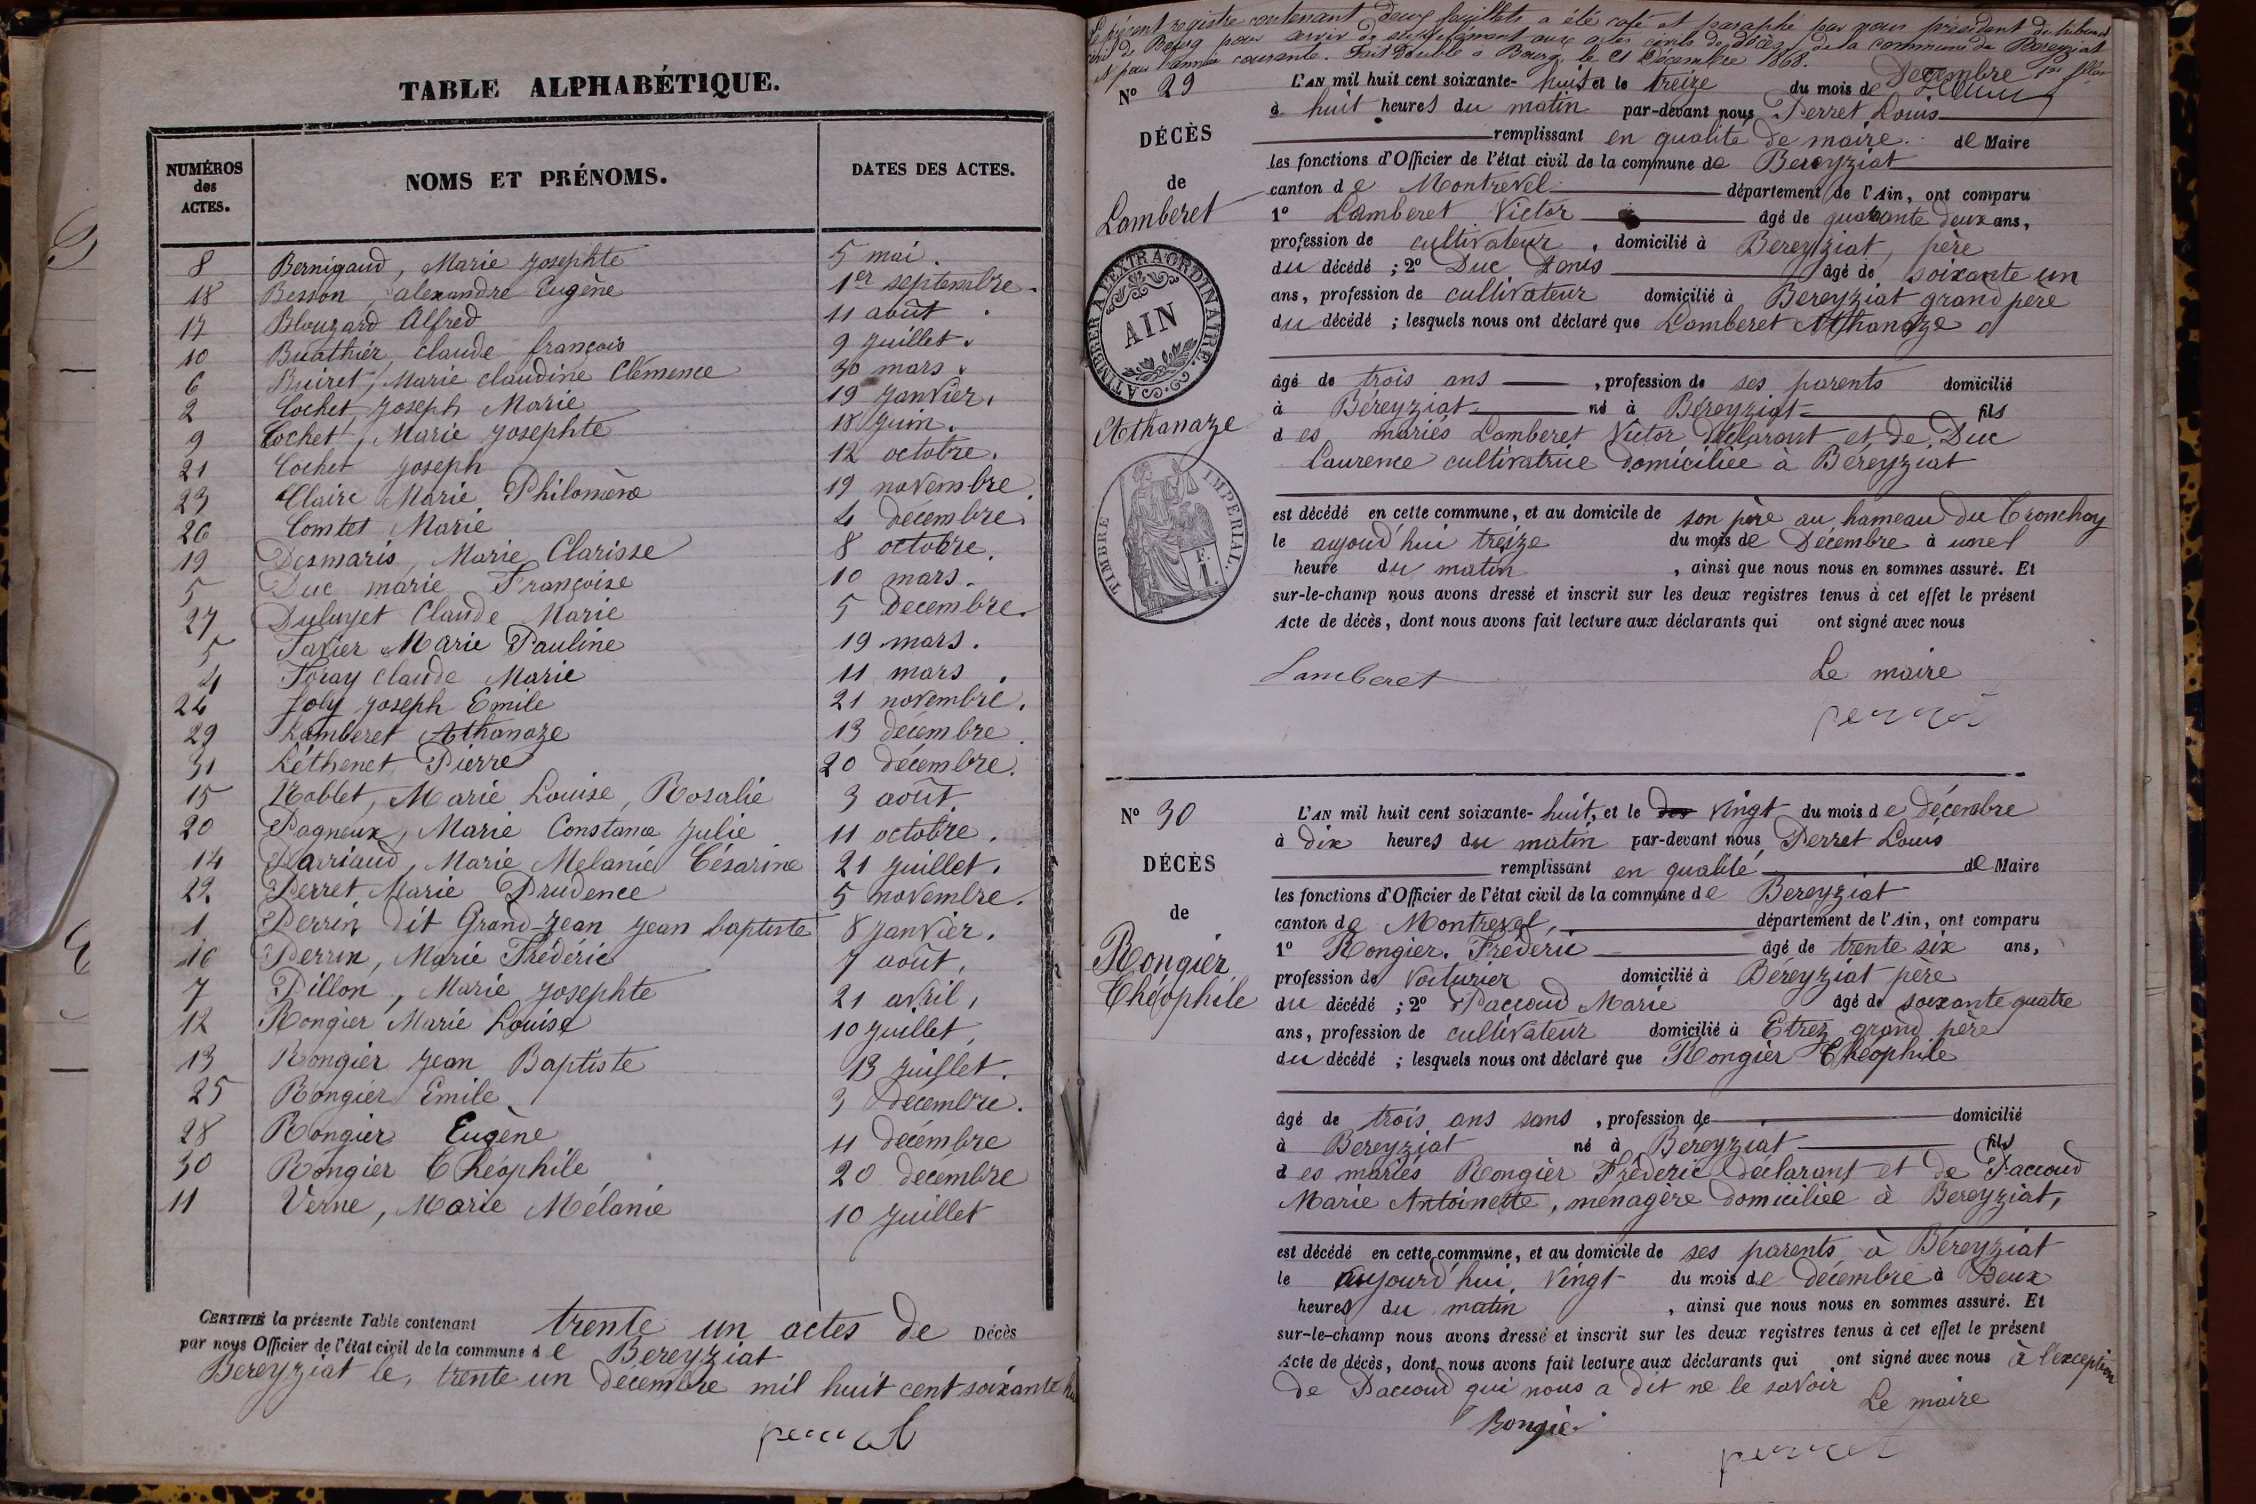 TABLE ALPHABÉTIQUE.
NUMÉROS des ACTES.
NOMS ET PRÉNOMS.
DATES DES ACTES.
8 Bernigaud, Marie Josephte 5 mai.
18 Besson, alexandre Eugène 1er septembre.
17 Blouzard Alfred 11 août.
10 Buathier claude françois 9 juillet.
6 Buiret, Marie claudine Clémence 30 mars.
2 Cochet Joseph Marie 19 Janvier.
9 Cochet, Marie Josephte 18 Juin.
21 Cochet Joseph 12 octobre.
23 Claire Marie Philomène 19 novembre.
26 Comtet Marie 4 decembre.
19 Desmaris, Marie Clarisse 8 octobre.
5 Duc marie Françoise 10 mars.
27 Duluyet Claude Marie 5 Decembre.
5 Favier Marie Pauline 19 mars.
4 Foray claude Marie 11 mars.
24 Joly Joseph Emile 21 novembre.
29 Lamberet Athanaze 13 décembre.
31 Léthenet Pierre 20 décembre.
15 Noblet, Marie Louise, Rosalie 3 août.
20 Pagneux, Marie Constance Julie 11 octobre.
14 Parriaud, Marie Melanie Césarine 21 Juillet.
22 Perret Marie Prudence 5 novembre.
1 Perrin dit Grand-Jean Jean baptiste 8 Janvier.
16 Perrin, Marie Frédéric 7 août.
7 Pillon, Marie Josephte 21 avril,
12 Rongier Marie Louise 10 Juillet,
13 Rongier Jean Baptiste 13 Juillet.
25 Rongier Emile 3 Decembre.
28 Rongier Eugène 11 décembre
30 Rongier Théophile 20 decembre
11 Verne, Marie Mélanie 10 Juillet
CERTIFIÉ la présente Table contenant trente un actes de Décès
par nous Officier de l'état civil de la commune de Bereyziat
Bereyziat le, trente un decembre mil huit cent soixante
Le présent registre contenant deux feuillets a été coté et paraphé par nous président du tribunal
civil de Bourg pour servir de supplément aux actes civils de décès, de la commune de Bereyziat
et pour l'année courante. Fait double à Bourg, le 21 Décembre 1868.
N° 29
L'AN mil huit cent soixante-huit et le treize du mois de Decembre
à huit heures du matin par-devant nous Perret Louis
DÉCÈS
remplissant en qualité de maire. de Maire
les fonctions d'Officier de l'état civil de la commune de Bereyziat
de
canton de Montrevel département de l'Ain, ont comparu
Lamberet
1° Lamberet Victor âgé de quarante deux ans,
profession de cultivateur, domicilié à Bereyziat, père
du décédé ; 2° Duc Denis âgé de soixante un
ans, profession de cultivateur domicilié à Bereyziat grand père
du décédé ; lesquels nous ont déclaré que Lamberet Athanaze
A TIMBRER A L'EXTRAORDINAIRE.
AIN
âgé de trois ans, profession de ses parents domicilié
à Béreyziat né à Béreyziat fils
Athanaze
des mariés Lamberet Victor déclarant et de Duc
Laurence cultivatrice domiciliée à Béreyziat
TIMBRE IMPERIAL.
F. 1.
est décédé en cette commune, et au domicile de son père au hameau du Tronchoy
le aujourd'hui treize du mois de Décembre à une
heure du matin, ainsi que nous nous en sommes assuré. Et
sur-le-champ nous avons dressé et inscrit sur les deux registres tenus à cet effet le présent
Acte de décès, dont nous avons fait lecture aux déclarants qui ont signé avec nous
Lamberet
Le maire
perret
N° 30
L'AN mil huit cent soixante-huit, et le vingt du mois de décembre
à dix heures du matin par-devant nous Perret Louis
DÉCÈS
remplissant en qualité de Maire
les fonctions d'Officier de l'état civil de la commune de Bereyziat
de
canton de Montrevel, département de l'Ain, ont comparu
Rongier
1° Rongier. Fréderic âgé de trente six ans,
profession de Voiturier domicilié à Béreyziat père
Théophile
du décédé ; 2° Paccoud Marie âgé de soixante quatre
ans, profession de cultivateur domicilié à Etrez grand père
du décédé ; lesquels nous ont déclaré que Rongier Théophile
âgé de trois ans sans, profession de domicilié
à Bereyziat né à Béreyziat fils
des mariés Rongier Fréderic declarant et de Paccoud
Marie Antoinette, menagère domiciliée à Bereyziat,
est décédé en cette commune, et au domicile de ses parents à Béreyziat
le aujourd'hui, vingt du mois de décembre à Deux
heures du matin, ainsi que nous nous en sommes assuré. Et
sur-le-champ nous avons dressé et inscrit sur les deux registres tenus à cet effet le présent
Acte de décès, dont nous avons fait lecture aux déclarants qui ont signé avec nous à l'exception
de Paccoud qui nous a dit ne le savoir
Le maire
Rongier
perret